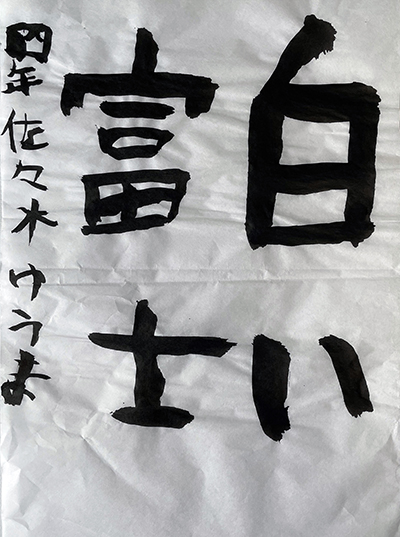 白い
富士
四年 佐々木ゆうま